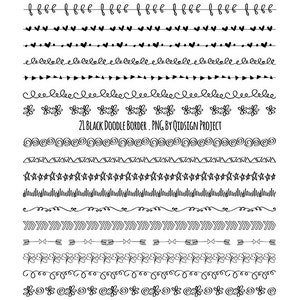 21 Black Doodle Border . PNG By Qidsign Project